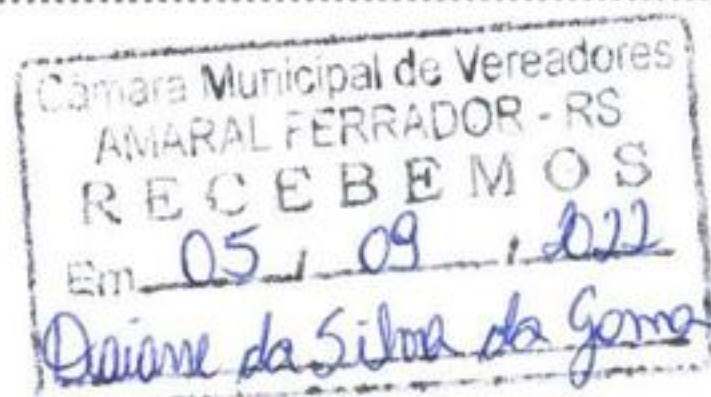 Câmara Municipal de Vereadores
AMARAL FERRADOR - RS
RECEBEMOS
Em 05 / 09 / 2022
Daiane da Silva da Gama